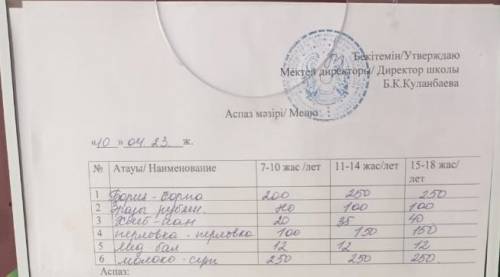 Бекітемін/Утверждаю
Мектеп директоры/ Директор школы
Б.К.Куланбаева
Аспаз мәзірі/ Меню
«10 » 04 23 ж.
№ Атауы/ Наименование 7-10 жас /лет 11-14 жас/лет 15-18 жас/ лет
1 борщ - борщ 200 250 250
2 100 100
3 Хлеб - нан 20 35 40
4 перловка - перловка 100 150 150
5 мёд бал 12 12 12
6 молоко - сүт 250 250 250
Аспаз: